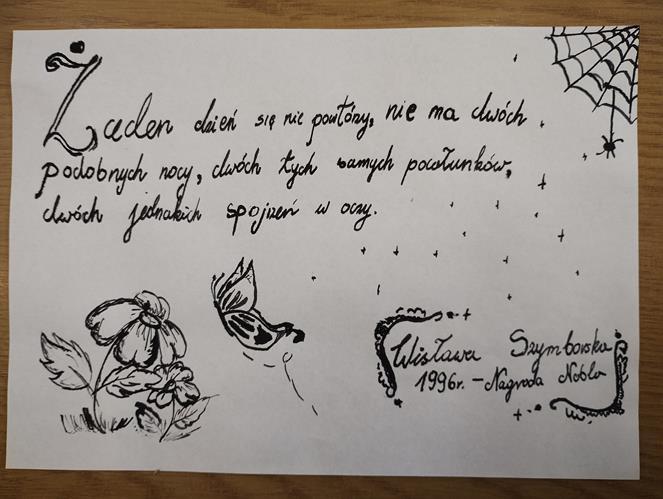 Żaden dzień się nie powtórzy, nie ma dwóch
podobnych nocy, dwóch tych samych pocałunków,
dwóch jednakich spojrzeń w oczy.
Wisława Szymborska
1996r. - Nagroda Nobla